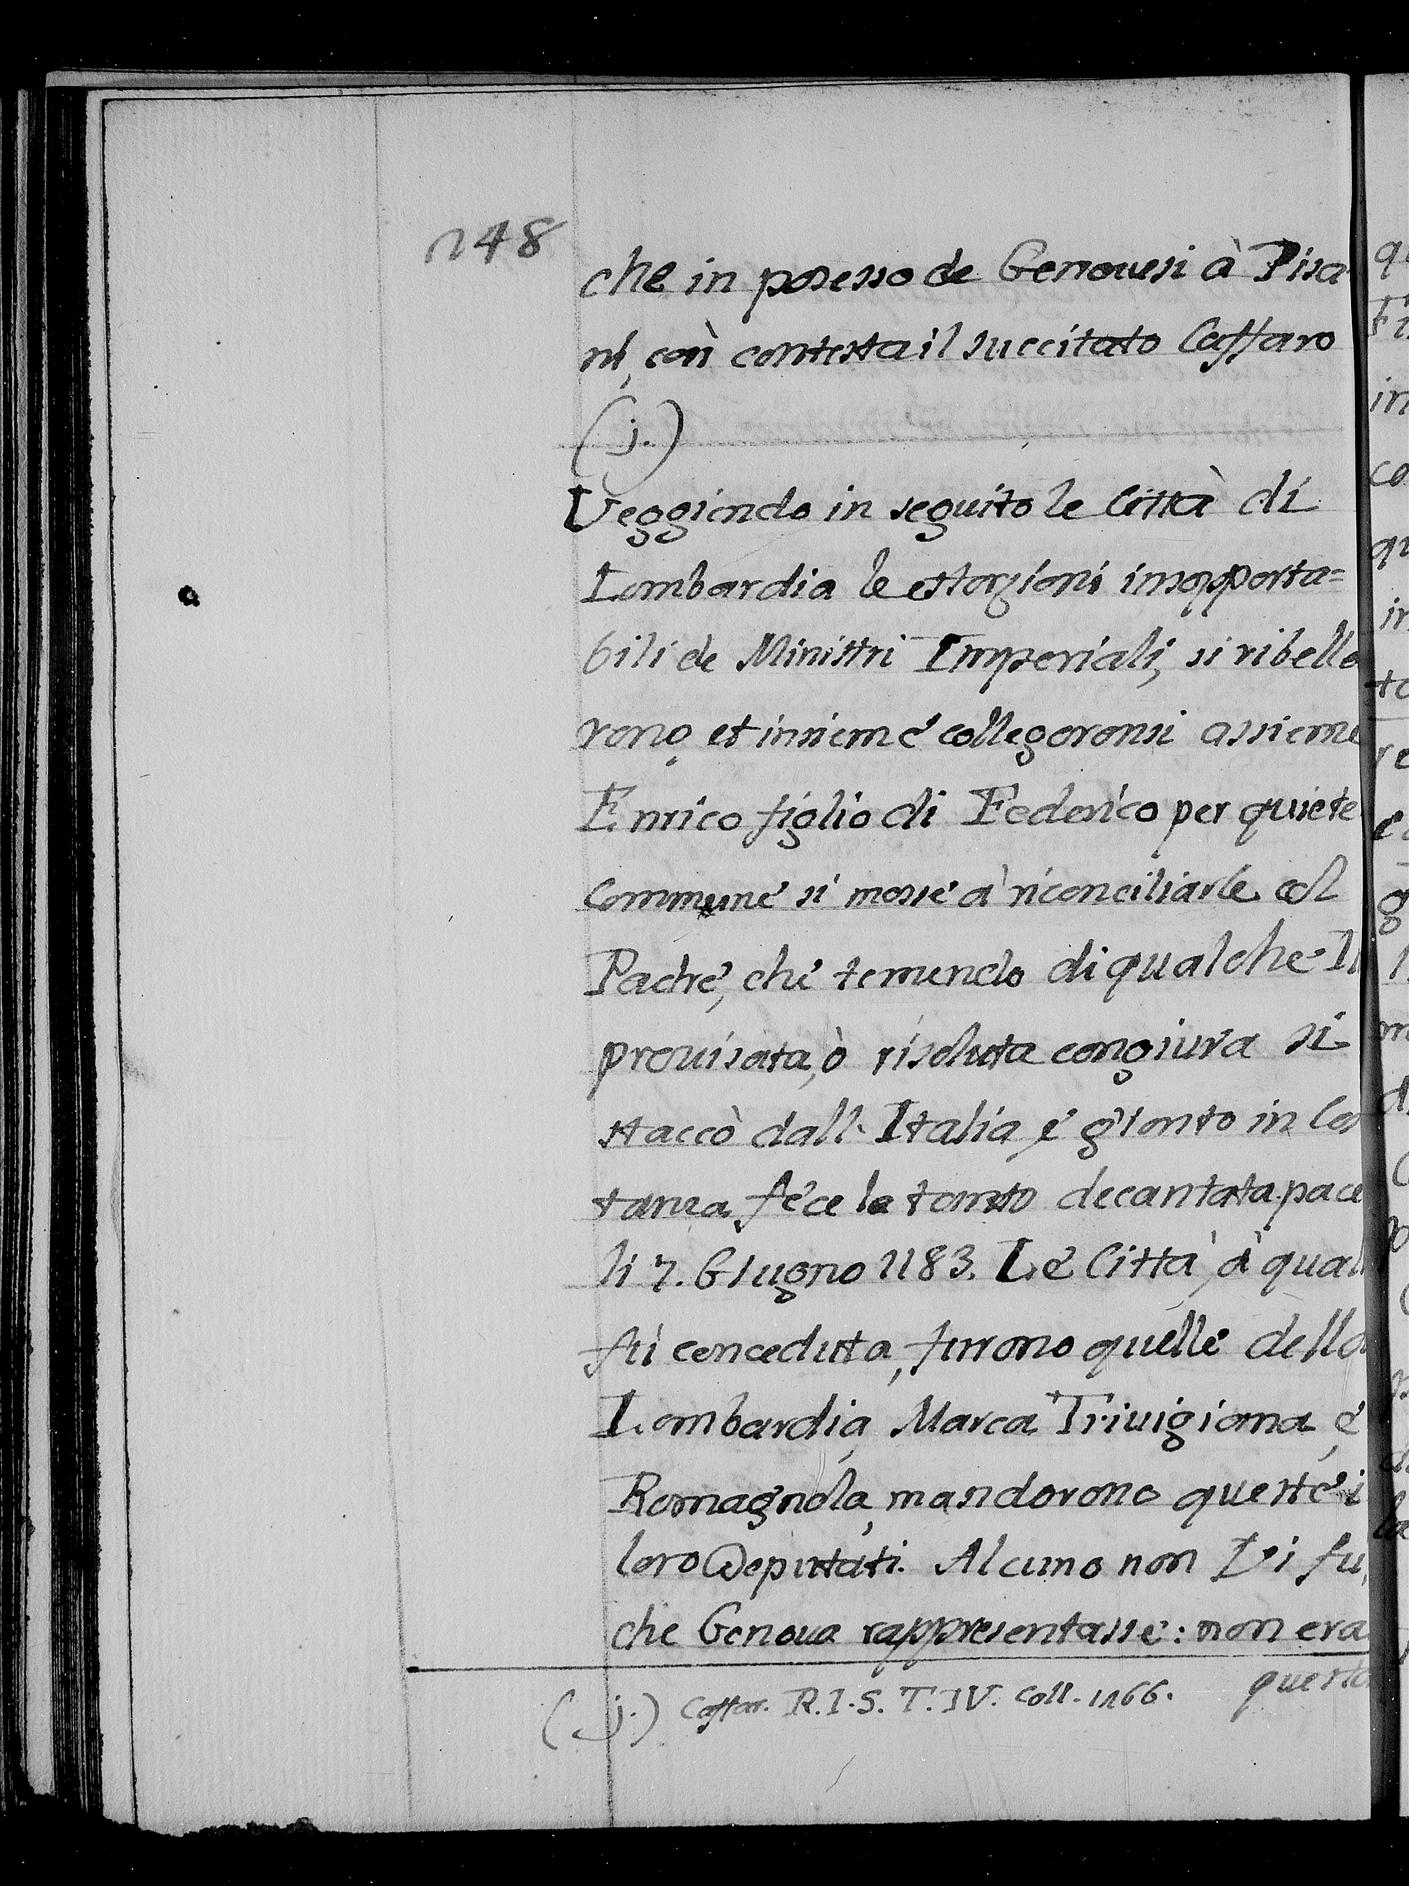 148
che in posesso de Genovesi à Pisa
ni, così contesta il succitato Caffaro
(j.)
Veggiendo in seguito le Città di
Lombardia le estorzioni insopporta=
bili de Ministri Imperiali, si ribella
rono, et insieme collegoronsi assieme
Enrico figlio di Federico per quiete
Commune si mosse à riconciliarle col
Padre, che temendo di qualche
provisata, ò risoluta congiura si
staccò dall Italia, e gionto in Cos
tanza fece la tanto decantata pace
li 7. Giugno 1183. Le Città, à quali
fù conceduta, furrono quelle della
Lombardia, Marca Trivigiana, e
Romagnola, mandorono queste i
loro Deputati. Alcuno non Vi fu,
che Genova rappresentasse: non era
questa
(j.) Caffar. R.I.S. T.IV. Coll. 1166.